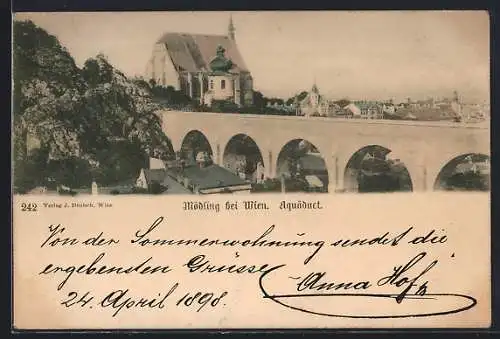 242 Verlag J. Deutsch, Wien. Mödling bei Wien. Aquäduct.
Von der Sommerwohnung sendet die
ergebensten Grüsse Anna Hof
24. April 1898.